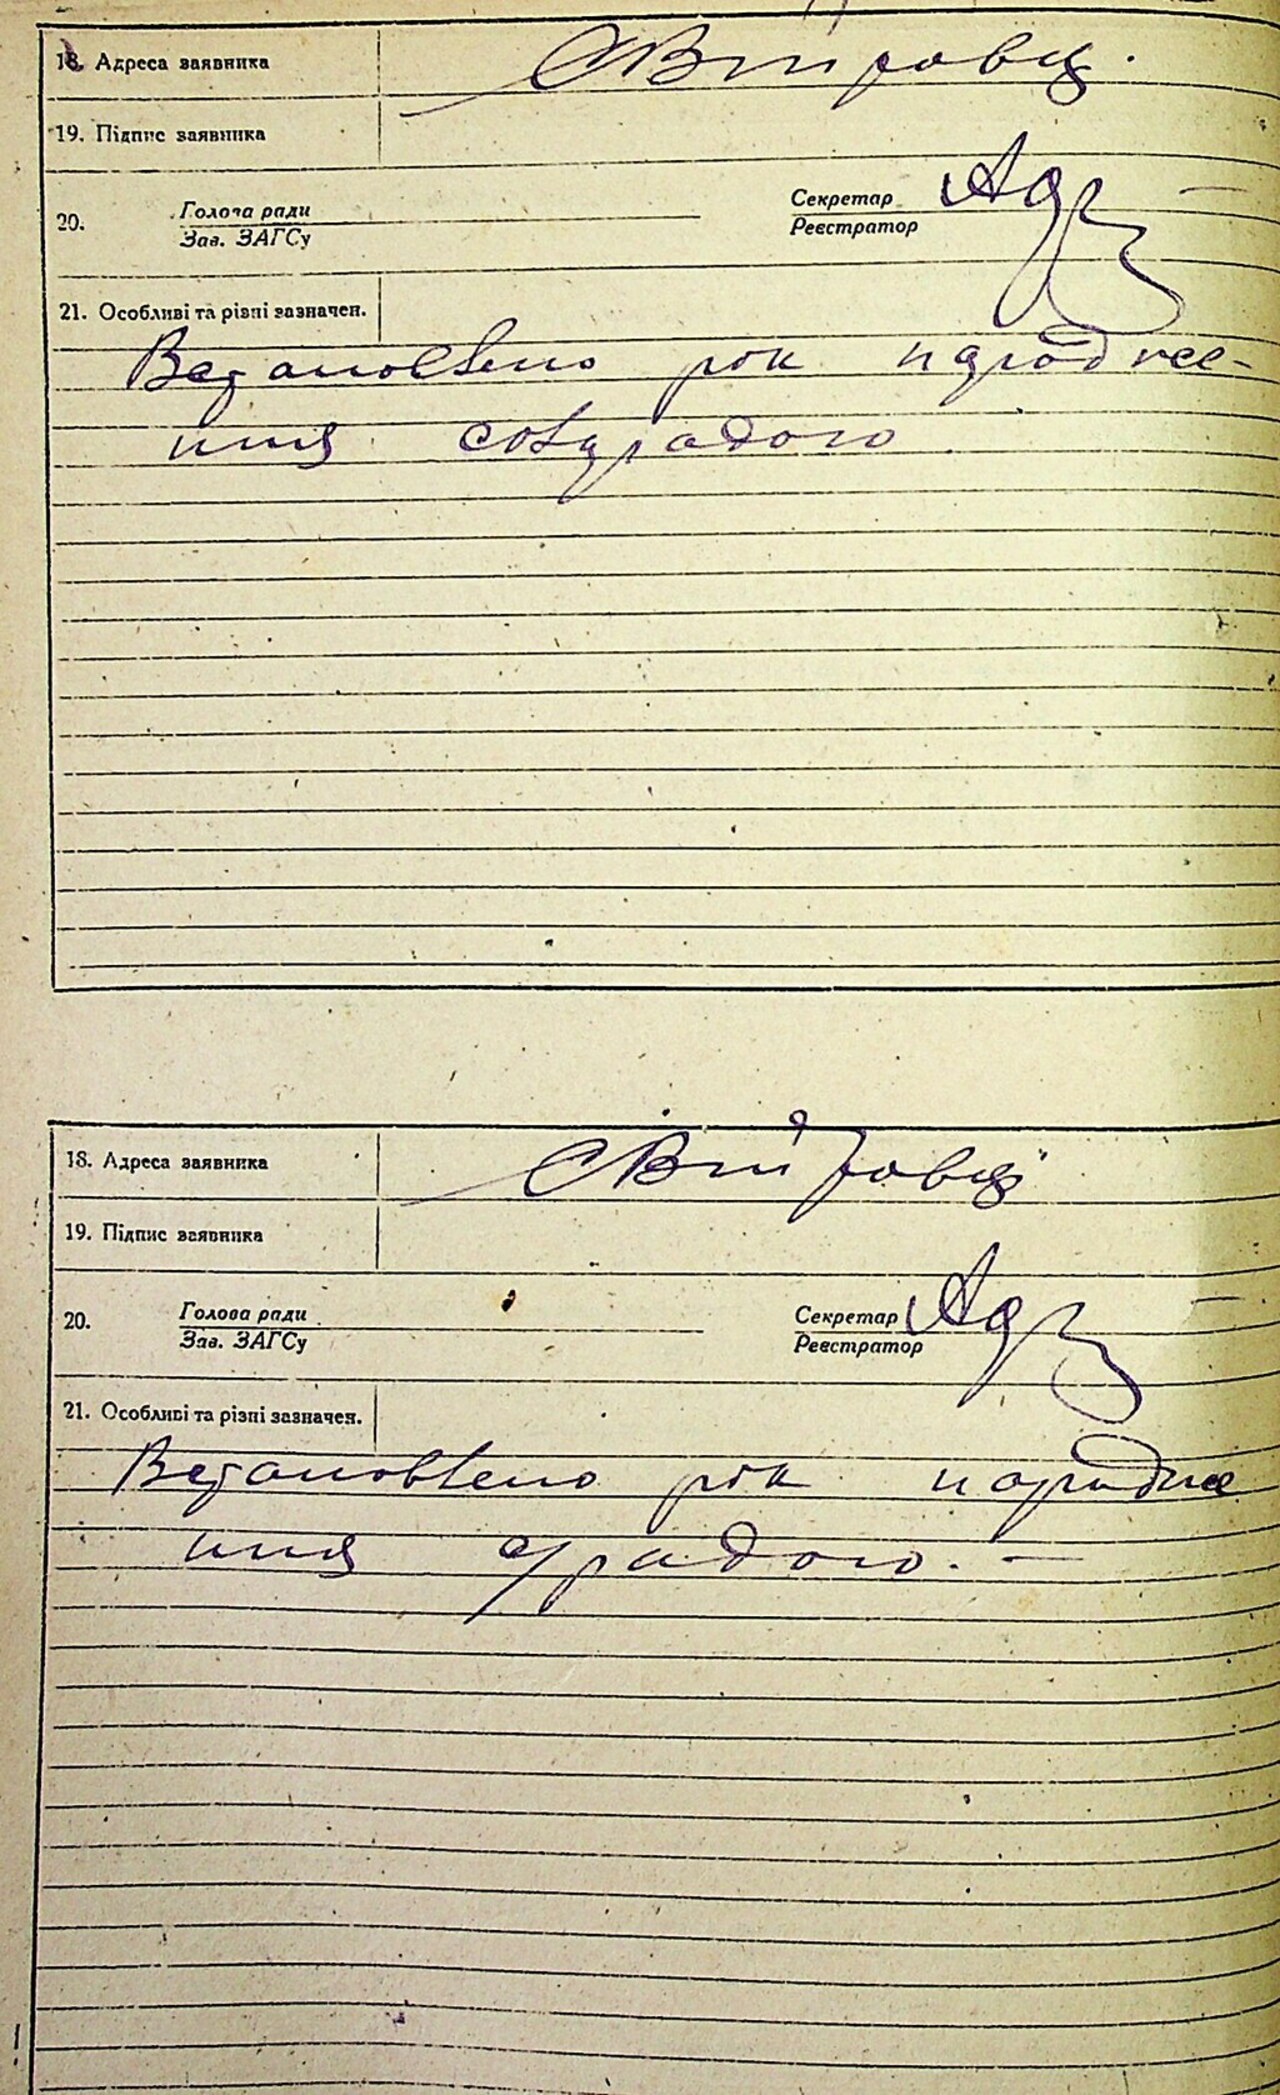 18. Адреса заявника
19. Підпис заявника
20. Голова ради
Зав. ЗАГСу
Секретар
Реєстратор
21. Особливі та різні зазначен.
Встановлено рік народжен-
ння
18. Адреса заявника
19. Підпис заявника
20. Голова ради
Зав. ЗАГСу
Секретар
Реєстратор
21. Особливі та різні зазначен.
Встановлено рік народже
ння с/радою. —